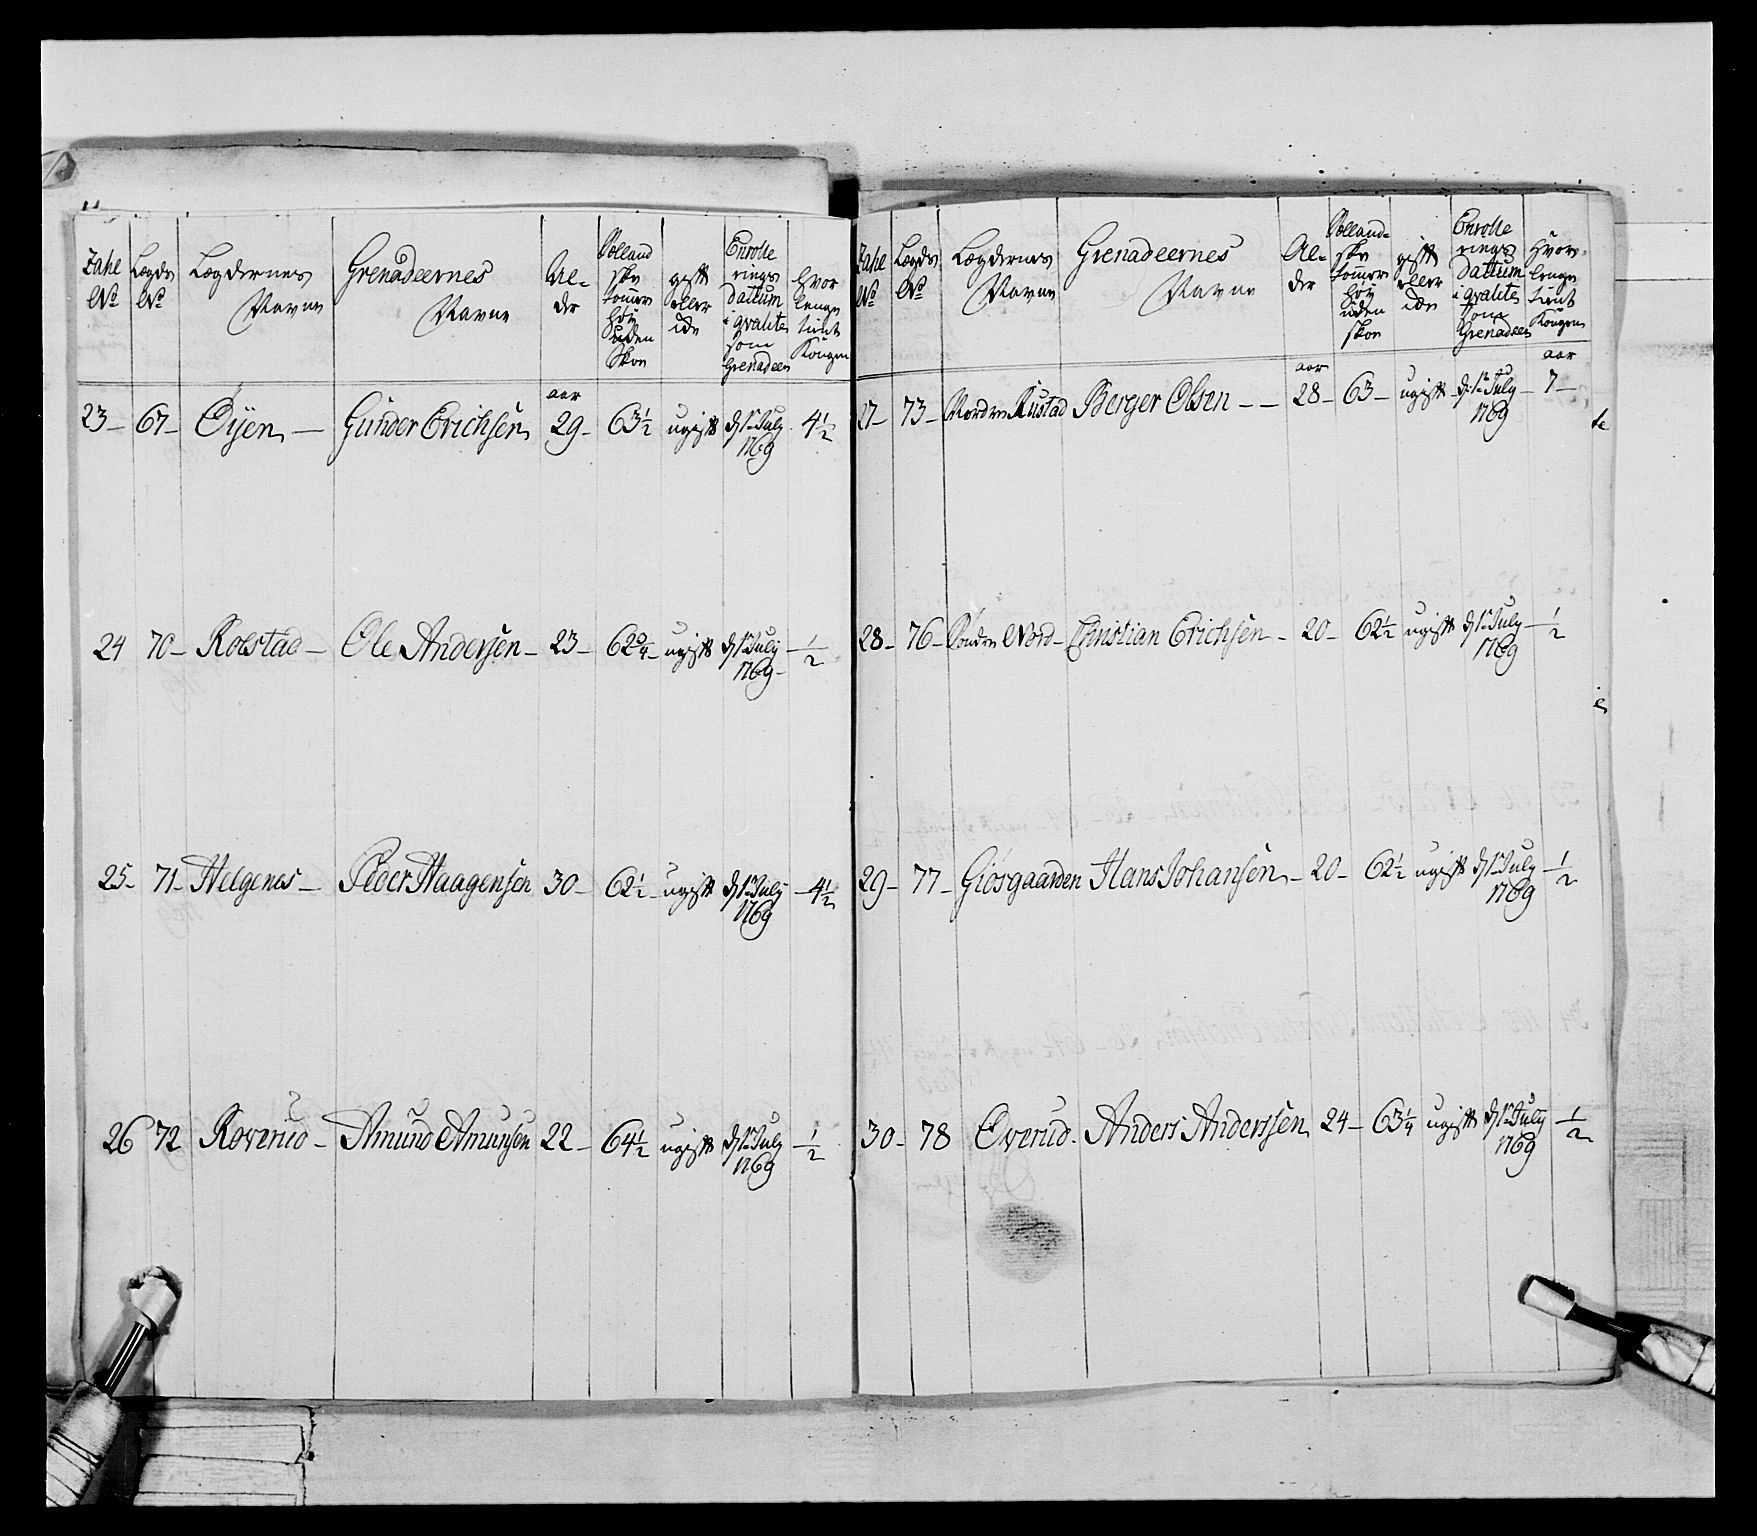 Zahl No | Lægds No | Lægdernes Navne | Grenadeernes Navne | Alder | Hollandske tommer høy uden Skoe | gift eller ide | Enrollerings dattum i qvalitet som Grenadeer | Hvor lenge tient Kongen
aar
23 – 67 – Öyen – Gunder Erichsen 29 – 63½ ugift d 1ste July 1769 4½
24 70 – Rolstad – Ole Andersen – 23 – 62¾ – ugift d 1ste July 1769 – ½
25 – 71 – Helgenes – Peder Haagensen 30 – 62½ – ugift d 1ste July 1769 – 4½
26 72 Roverud – Amund Amundsen 22 – 64½ ugift d 1ste July 1769 – ½
Zahl No | Lægds No | Lægdernes Navne | Grenadeernes Navne | Alder | Hollandske tommer høy uden skoe | gift eller ide | Enrollerings dattum i qvalitet som Grenadeer | Hvor lenge tient Kongen
aar aar
27 – 73 – Nordre Rustad Berger Olsen – – 28 – 63 – ugift – d: 1ste July 1769 – 7 –
28 – 76 – Søndre Nord – Christian Erichsen – 20 – 62½ ugift d 1ste July 1769 – ½
29 – 77 – Giösgaarden Hans Johansen – 20 – 62½ ugift d 1ste July 1769 – ½
30 – 78 Everud – Anders Anderssen 24 – 63¼ ugift d 1ste July 1769 – ½